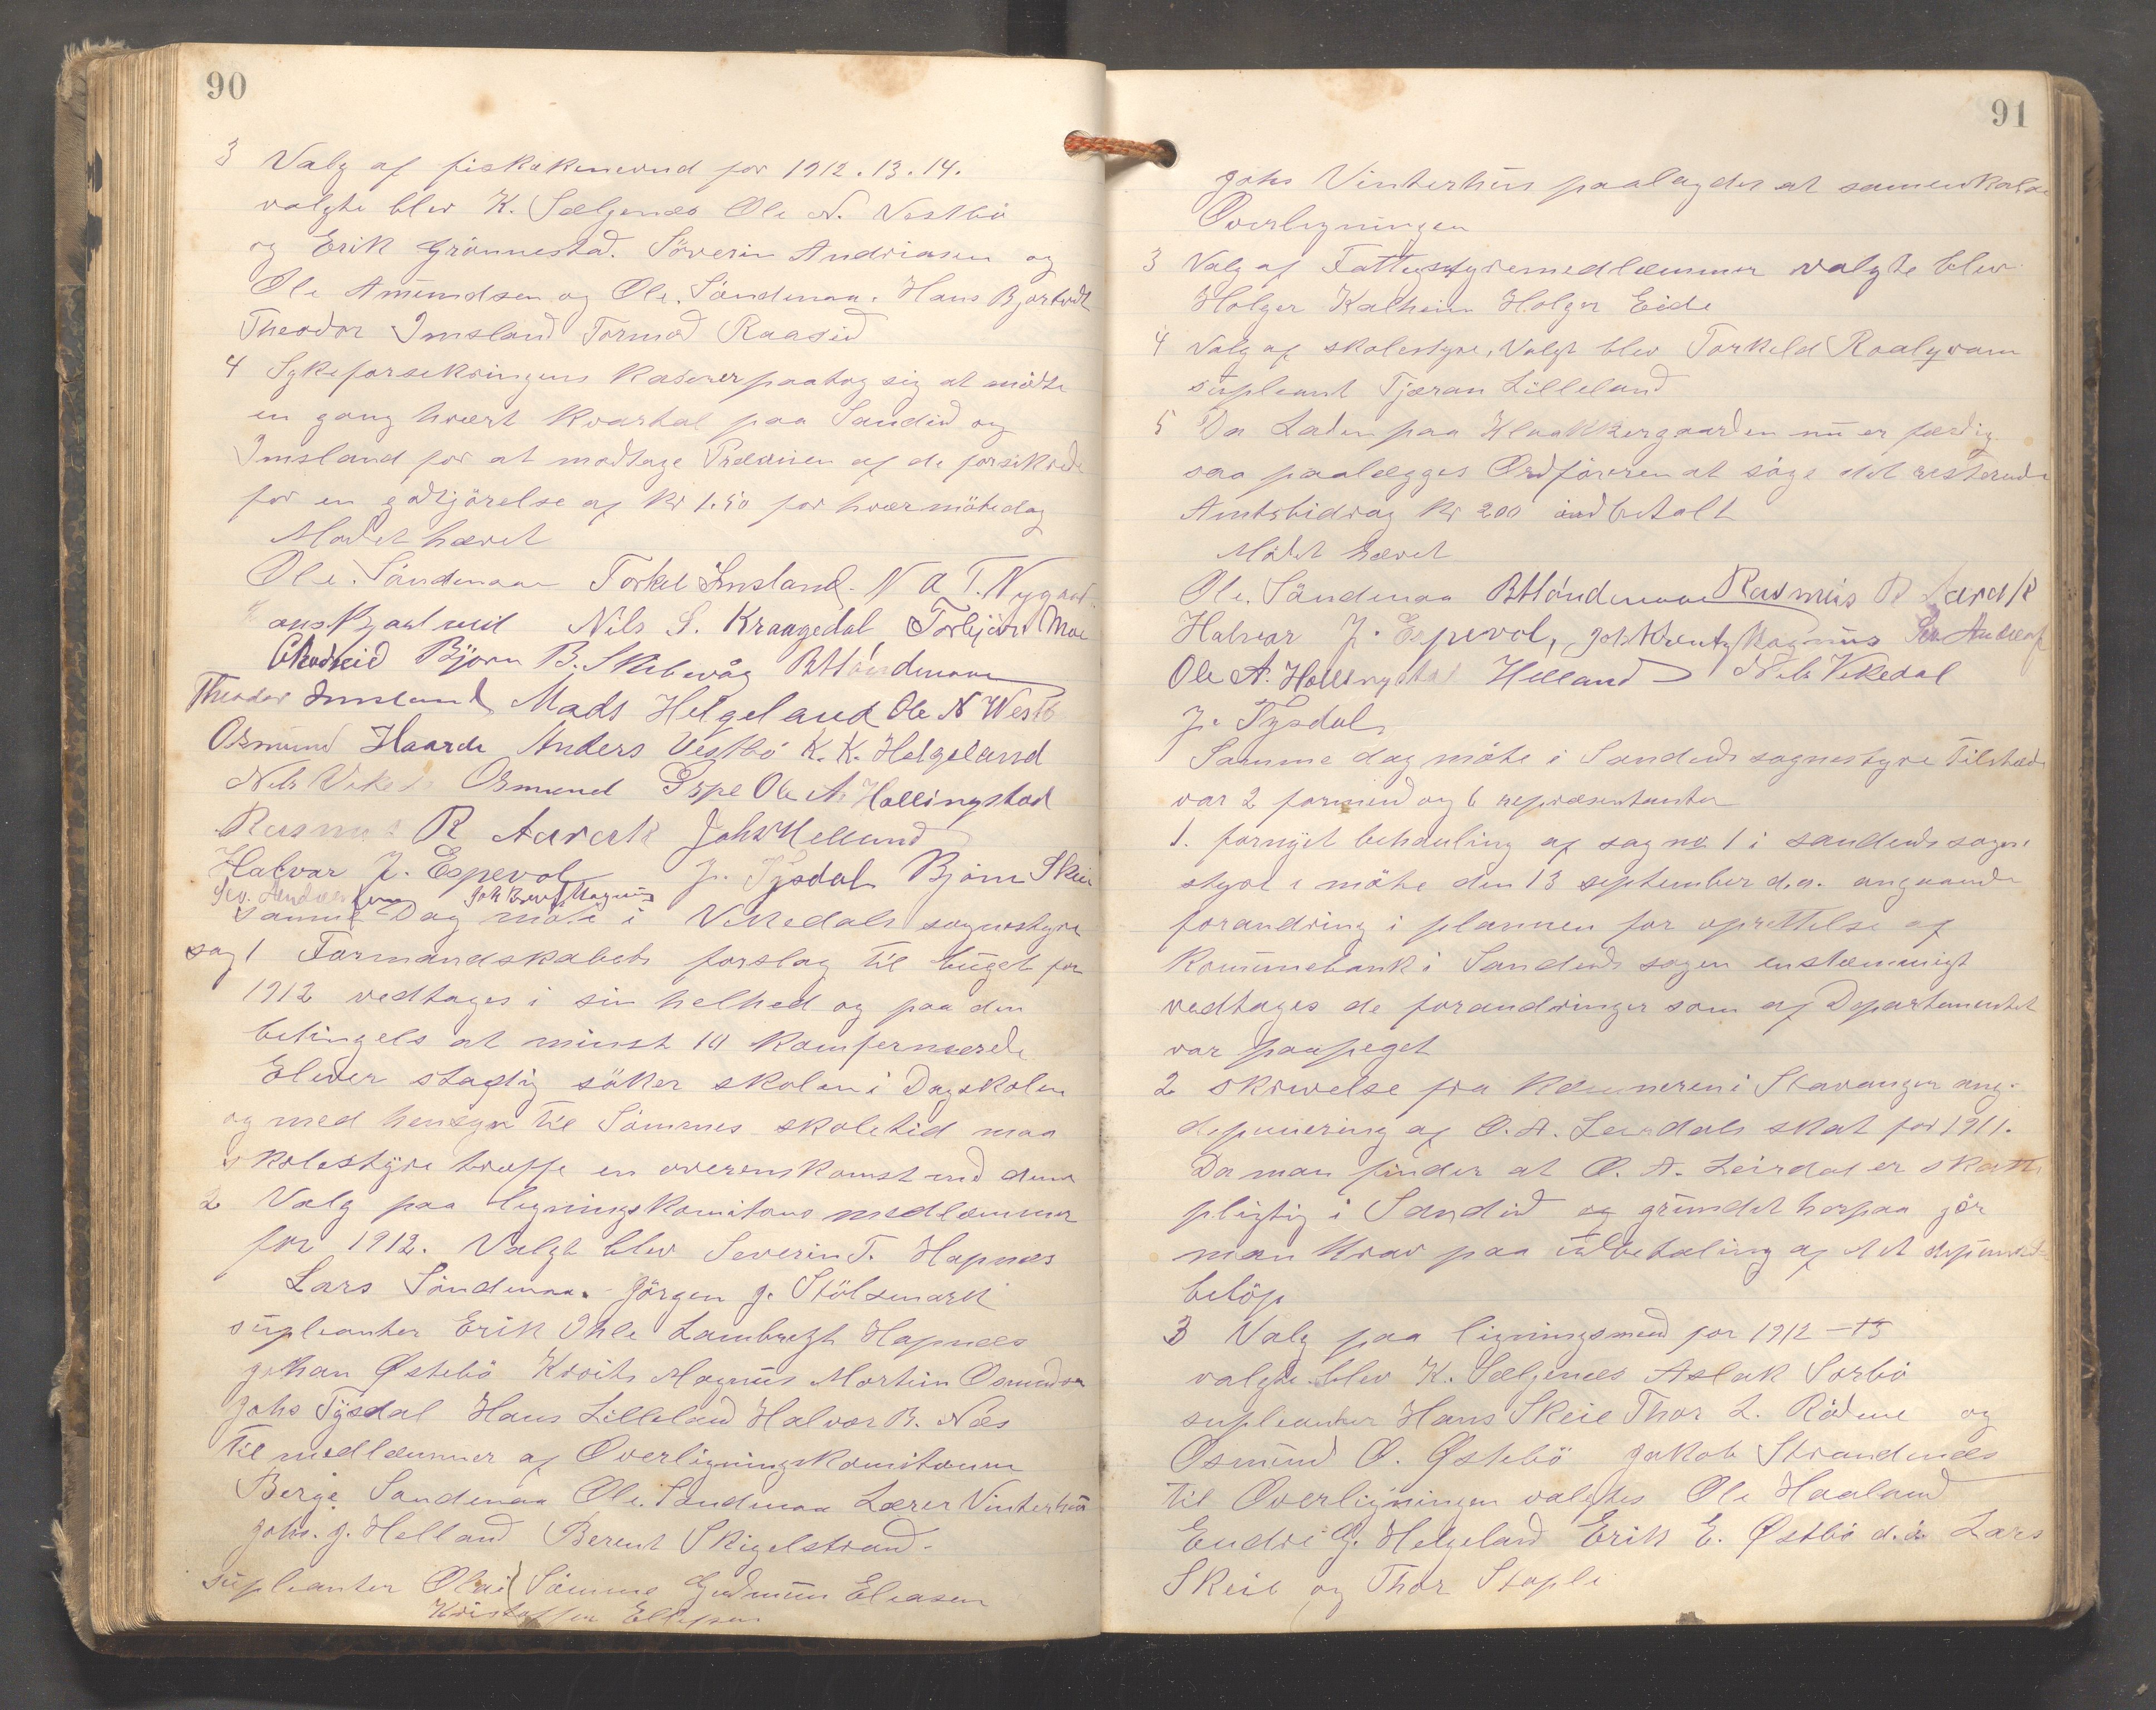 90
3 Valg af fiskakenevnd for 1912. 13. 14.
valgte blev K. Sælgenæs Ole N. Vestbö
og Erik Grönnestad. Söverin Andriasen og
Ole Amundsen og Ole. Söndenaa. Hans Bjortvedt
Theodor Imsland Tormod Raaseid
4 Sykeforsekringens Kaserer paatog sig at möte
en gang hvært kvartal paa Sandeid og
Imsland for at modtage Præmien af de forsikrede
for en godtjörelse af kr 1.50 for hvær mötedag
Mødet hævet
Ole. Söndenaa Torkel Imsland. N A T. Nygaard
Nils S. Kraagedal Torbjörn Moe
Björn B. Skibevåg B Höndenaa
Theodor Imsland Mads Helgeland Ole N Westb
Osmund Haarde Anders Vestbö K. K. Helgeland
Nels Vikedal Osmund Espe Ole A. Hollingstad
Rasmus R Aarak Johs Helland
Halvor J. Espevol J. Tysdal Björn Skeie
Sev. Andreasen Joh Kreutz Magnus
samme Dag möte i Vikedals sognestyre
sag 1 Formandskabets forslag til buget for
1912 vedtages i sin helhed og paa den
betingels at minst 10 komfernærede
Elever stadig söker skolen i Dagskolen
og med hensyn til Sömmes skoletid maa
skolestyre træffe en overenskomst med denne
2 Valg paa ligningskomitens medlæmmer
for 1912. Valgt blev Severin T. Hapnes
Lars Söndenaa. Jörgen J. Stölsmark
supleanter Erik Ihle Lambregt Hapnes
Johan Østebö Kroits Magnus Martin Osmundsen
Johs Tysdal Hans Lilleland Halvor B. Næs
Til medlæmmer af Overligningskomitenen
Berge Sandenaa Ole. Söndenaa Lærer Vinterhus
Johs. J. Helland Berent Skigelstrand.
supleanter Olai Sömme Gudmun Eleasen
Kristoffer Ellefsen
91
Johs Vinterhus paalagdes at samenkalde
Overligningen
3 Valg af Fattigstyremedlæmmer valgte blev
Holger Kalheim Holger Eide
4 Valg af skolestyre, Valgt blev Torkeld Roalqvam
supleant Tjæran Lilleland
5 Da Laden paa Klokkergaarden nu er færdig
saa paalægges Ordföreren at söge det resterende
Amtsbidrag kr 200 indbetalt
Mödet hævet
Ole. Söndenaa B Höndenaa Rasmus R Aarak
Halvor J. Espevol, Joh Kreutz Magnus Sev Andreas
Ole A. Hollingstad Helland Nils Vikedal
J. Tysdal
Samme dag möte i Sandeids sognestyre Tilstæde
var 2 formend og 6 repræsentanter
1. fornyet behanling af sag no 1 i sandeids sogne
styre i möte den 13 september d.a. angaaende
forandring i plannen for oprettelse af
Komunebank i Sandeids sogen enstæmmigt
vedtages de forandringer som af Departementet
var paapeget
2 skrivelse fra Kæmneren i Stavanger ang.
depunering af O. A. Leirdals skat for 1911.
Da man finder at O. A. Leirdal er skatte
pligtig i Sandeid og grundet herpaa gör
man krav paa indbetaling af det depunerede
belöp
3 Valg paa ligningsmend for 1912 – 13
valgte blev K. Sælgenæs Aslak Sorbö
supleanter Hans Skeie Thor L. Rödne og
Osmund O. Østebö Jakob Strandenæs
til Overligningen valgtes Ole Haaland
Endre G. Helgeland Erik E. Østbö d.ä Lars
Skeie og Thor Stople